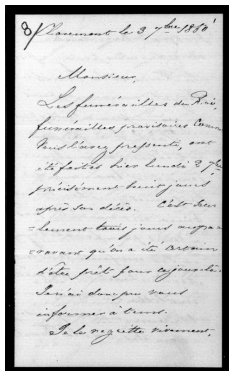 8/ Claremont le 3 7bre 1850
Monsieur,
Les funérailles du Roi,
funérailles provisoires comme
vous l'avez pressenti, ont
été faites hier lundi 2 7bre
précisément huit jours
après son décès. C'est seu-
lement trois jours aupa-
ravant qu'on a été certain
d'être prêt pour ce jour-là.
Je n'ai donc pu vous
informer à tems.
Je le regrette vivement,